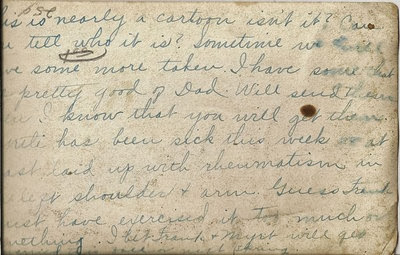 is is nearly a cartoon isn't it? Can
tell who it is? Sometime we will
ve some more taken. I have some that
pretty good of Dad. Will send them
I know that you will get them.
has been sick this week or at
ast laid up with rheumatism in
left shoulder & arm. Guess Frank
ust have exercised it too much or
mething. I bet Frank & Myrt will get